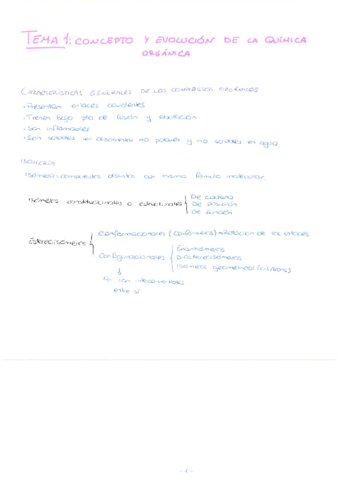 TEMA 1: CONCEPTO Y EVOLUCIÓN DE LA QUÍMICA
ORGÁNICA
CARACTERÍSTICAS GENERALES DE LOS COMPUESTOS ORGÁNICOS
· Presentan enlaces covalentes
· Tienen bajo pto de fusión y ebullición
· Son inflamables
· Son solubles en disolventes no polares y no solubles en agua
ISOMERÍA
Isómeros: compuestos distintos con misma fórmula molecular.
Isómeros constitucionales o estructurales
De cadena
De posición
De función
Estereoisómeros
Conformacionales (confórmeros) → Rotación de los enlaces
Configuracionales
Enantiómeros
Diastereoisómeros
Isómeros geométricos
No son interconvertibles
entre sí
- 1 -